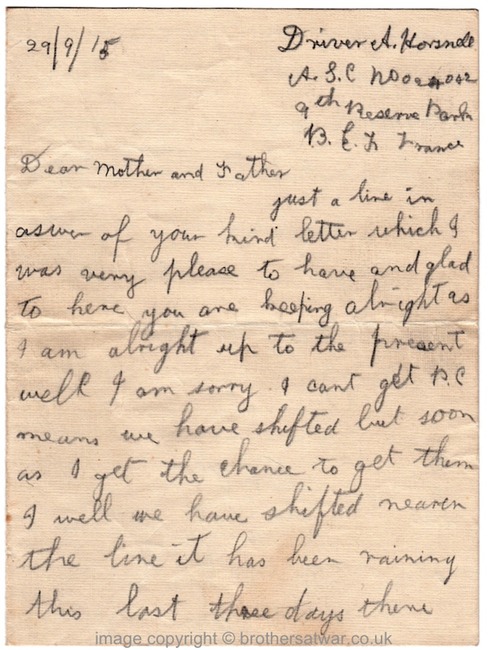 29/9/15
Driver A. Horsnell
A.S.C No 024042
9th Reserve Park
B. E. F France
Dear Mother and Father
just a line in
aswer of your kind letter which I
was very please to have and glad
to here you are keeping alright as
I am alright up to the present
well I am sorry I cant get P.C
means we have shifted but soon
as I get the chance to get them
I well we have shifted nearer
the line it has been raining
this last three days there
image copyright © brothersatwar.co.uk